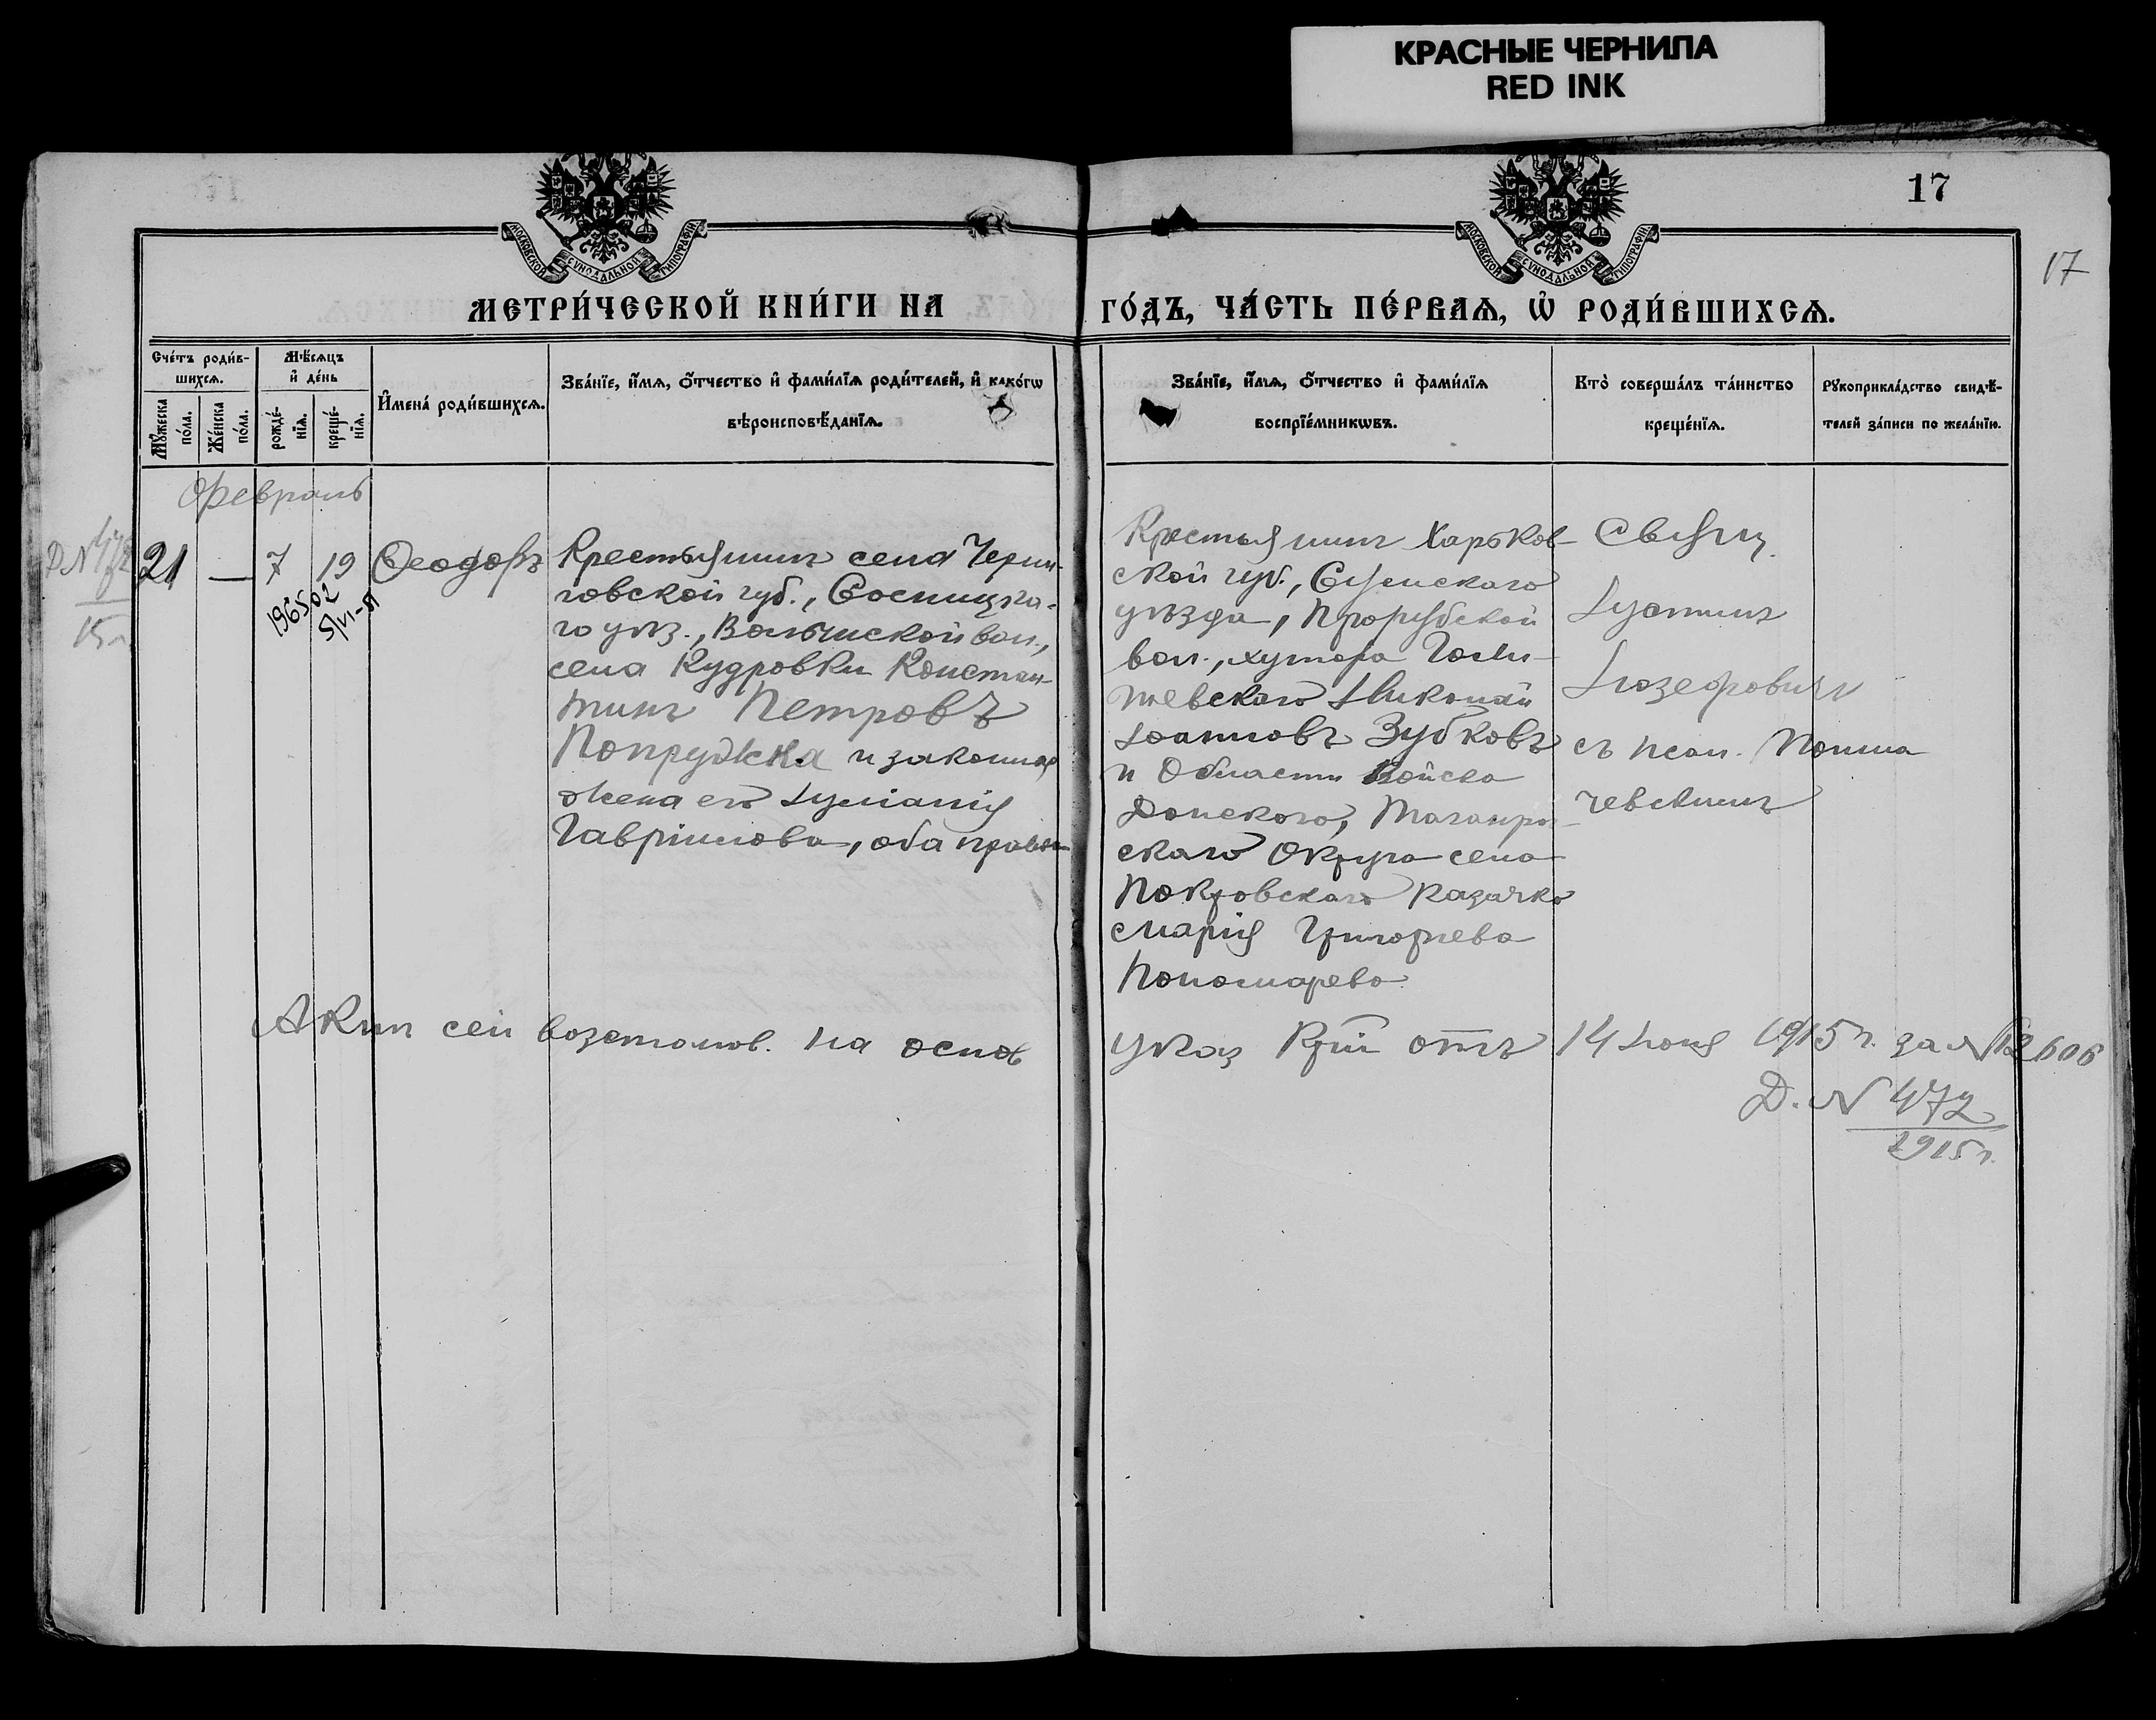 КРАСНЫЕ ЧЕРНИЛА
RED INK
17
17
МОСКОВСКОЙ СУНОДАЛЬНОЙ ТИПОГРАФІИ
МОСКОВСКОЙ СУНОДАЛЬНОЙ ТИПОГРАФІИ
МЕТРИ́ЧЕСКОЙ КНИ́ГИ НА
ГО́ДЪ, ЧА́СТЬ ПЕ́РВАѦ, Ѡ҆ РОДИ́ВШИХСѦ.
Сче́тъ роди́в-
шихсѧ.
Мꙋ́жеска
по́ла.
Же́нска
по́ла.
Мѣ́сѧцъ
и҆ де́нь
рожде́-
нїѧ.
креще́-
нїѧ.
И҆мена̀ роди́вшихсѧ.
Зва́нїе, и҆́мѧ, ѻ҆́тчество и҆ фами́лїѧ роди́телей, и҆ како́гѡ
вѣроисповѣ́данїѧ.
Зва́нїе, и҆́мѧ, ѻ҆́тчество и҆ фами́лїѧ
воспрїе́мникѡвъ.
Кто̀ соверша́лъ та́инство
креще́нїѧ.
Рꙋкоприкла́дство свидѣ́-
телей за́писи по жела́нїю.
Февраль
Д № 472
15 г.
21 — 7 19 Ѳеодоръ
196502
5/VI-51
Крестьянинъ села Черни-
говской губ., Сосницка-
го уѣз., Волынской вол.,
села Кудровки Констан-
тинъ Петровъ
Попружка и законная
жена его Іуліанія
Гавріилова, оба правосл.
Крестьянинъ Харьков-
ской губ., Сумскаго
уѣзда, Прорубской
вол., хутора
Николай
Іоанновъ Зубковъ
и Области Войска
Донского, Таганрог-
скаго Округа села
Покровскаго казачка
Марія Григорьева
Пономарева
Свящ.
Іустинъ
Іозефовичъ
съ псал. Понма
чевскимъ
Актъ сей возстанов. на основ.
указ. Кр. отъ 14 Іюня 1915 г. за № 12606
Д. № 472
1915 г.